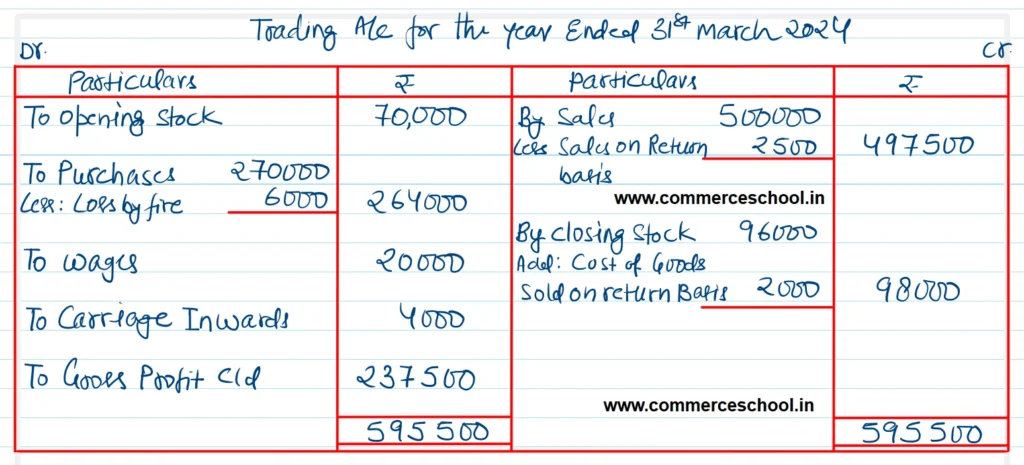 Trading A/c for the year Ended 31st march 2024
Dr. Cr.
Particulars ₹ Particulars ₹
To opening stock 70,000 By Sales 500000
Less Sales on Return 2500 497500
basis
To Purchases 270000
Less: Loss by fire 6000 264000
www.commerceschool.in
By Closing Stock 96000
To wages 20000
Add: Cost of Goods
Sold on return Basis 2000 98000
To Carriage Inwards 4000
To Gross Profit c/d 237500
www.commerceschool.in
595500 595500